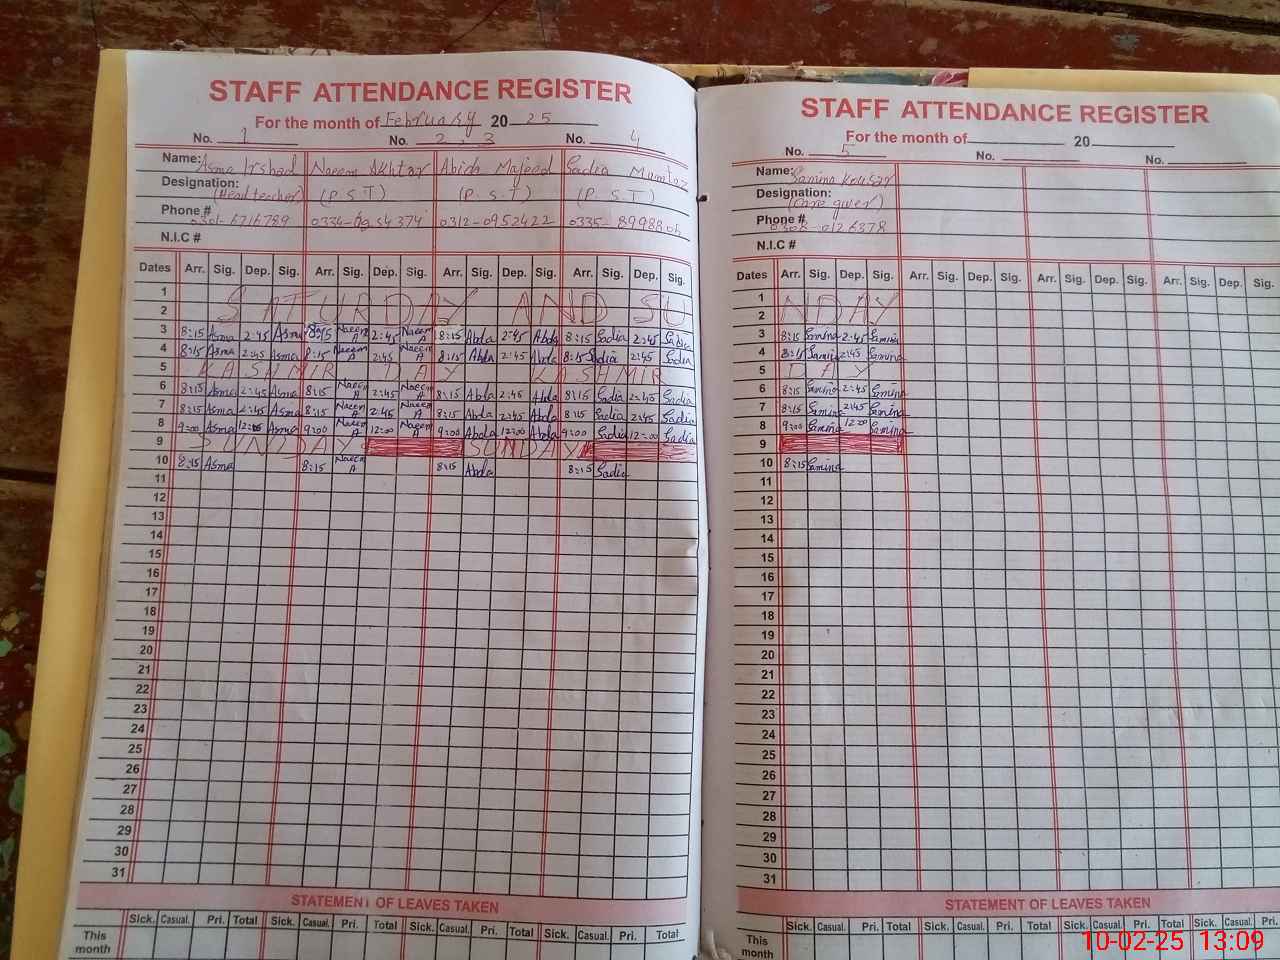 STAFF ATTENDANCE REGISTER
For the month of February 20 25
No. 1 No. 2, 3 No. 4
Name: Asma Irshad Naeem Akhtar Abida Majeed Sadia Mumtaz
Designation: (Head teacher) (P.S.T) (P.S.T) (P.S.T)
Phone # 6716789 0312-0952422
N.I.C #
Dates Arr. Sig. Dep. Sig. Arr. Sig. Dep. Sig. Arr. Sig. Dep. Sig. Arr. Sig. Dep. Sig.
1 SATURDAY AND SU
2
3 8:15 Asma 2:45 Asma 8:15 Naeem A 2:45 Naeem A 8:15 Abda 2:45 Abda 8:15 Sadia 2:45 Sadia
4 8:15 Asma 2:45 Asma 8:15 Naeem 2:45 Naeem A 8:15 Abda 2:45 Abda 8:15 Sadia 2:45 Sadia
5 KASHMIR DAY KASHMIR
6 8:15 Asma 2:45 Asma 8:15 Naeem A 2:45 Naeem A 8:15 Abda 2:45 Abda 8:15 Sadia 2:45 Sadia
7 8:15 Asma 2:45 Asma 8:15 Naeem A 2:45 Naeem A 8:15 Abda 2:45 Abda 8:15 Sadia 2:45 Sadia
8 9:00 Asma 12:00 Asma 9:00 Naeem A 12:00 Naeem A 9:00 Abda 12:00 Abda 9:00 Sadia 12:00 Sadia
9 SUNDAY SUNDAY
10 8:15 Asma 8:15 Naeem A 8:15 Abda 8:15 Sadia
11
12
13
14
15
16
17
18
19
20
21
22
23
24
25
26
27
28
29
30
31
STATEMENT OF LEAVES TAKEN
Sick. Casual. Pri. Total Sick. Casual. Pri. Total Sick. Casual. Pri. Total Sick. Casual. Pri. Total
This month
STAFF ATTENDANCE REGISTER
For the month of 20
No. 5 No. No.
Name: Samina Kousar
Designation: (Care giver)
Phone # 0126378
N.I.C #
Dates Arr. Sig. Dep. Sig. Arr. Sig. Dep. Sig. Arr. Sig. Dep. Sig. Arr. Sig. Dep. Sig.
1 NDAY
2
3 8:15 Samina 2:45 Samina
4 8:15 Samina 2:45 Samina
5 DAY
6 8:15 Samina 2:45 Samina
7 8:15 Samina 2:45 Samina
8 9:00 Samina 12:00 Samina
9
10 8:15 Samina
11
12
13
14
15
16
17
18
19
20
21
22
23
24
25
26
27
28
29
30
31
STATEMENT OF LEAVES TAKEN
Sick. Casual. Pri. Total Sick. Casual. Pri. Total Sick. Casual. Pri. Total Sick. Casual
This month
10-02-25 13:09